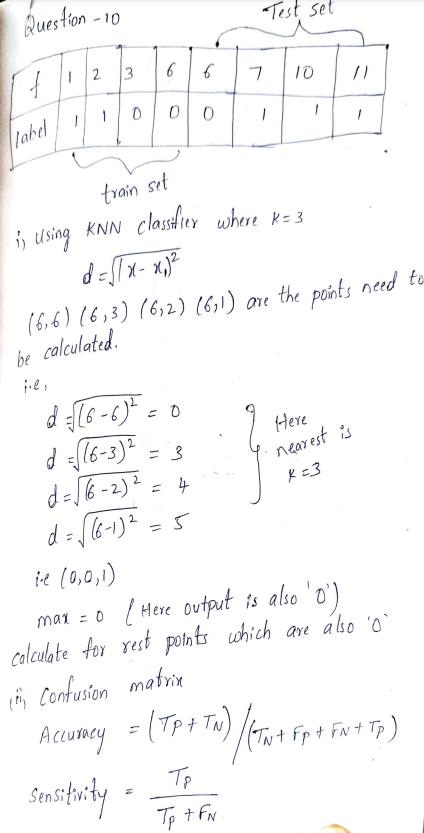 Question - 10
Test set
f 1 2 3 6 6 7 10 11
label 1 1 0 0 0 1 1 1
train set
i, Using KNN classifier where K=3
d = √|x - x₁)²
(6,6) (6,3) (6,2) (6,1) are the points need to
be calculated.
i.e,
d = √(6-6)² = 0
d = √(6-3)² = 3
d = √(6-2)² = 4
d = √(6-1)² = 5
Here
nearest is
K=3
i.e (0,0,1)
max = 0 (Here output is also '0')
calculate for rest points which are also '0'
(ii) Confusion matrix
Accuracy = (TP + TN) / (TN + FP + FN + TP)
Sensitivity = TP / TP + FN